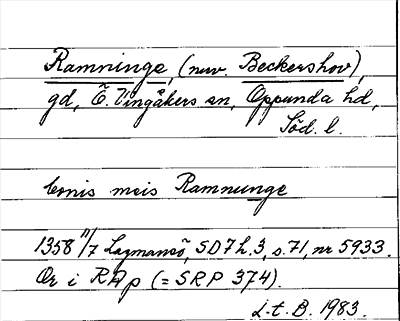 Ramninge, (nuv. Beckershov),
gd, Ö. Vingåkers sn, Oppunda hd,
Söd. l.
bonis meis Ramnunge
1358 11/7 Lagmansö, SD 7 h. 3, s. 71, nr 5933.
Or i RAp (= SRP 374).
L.t. B. 1983.